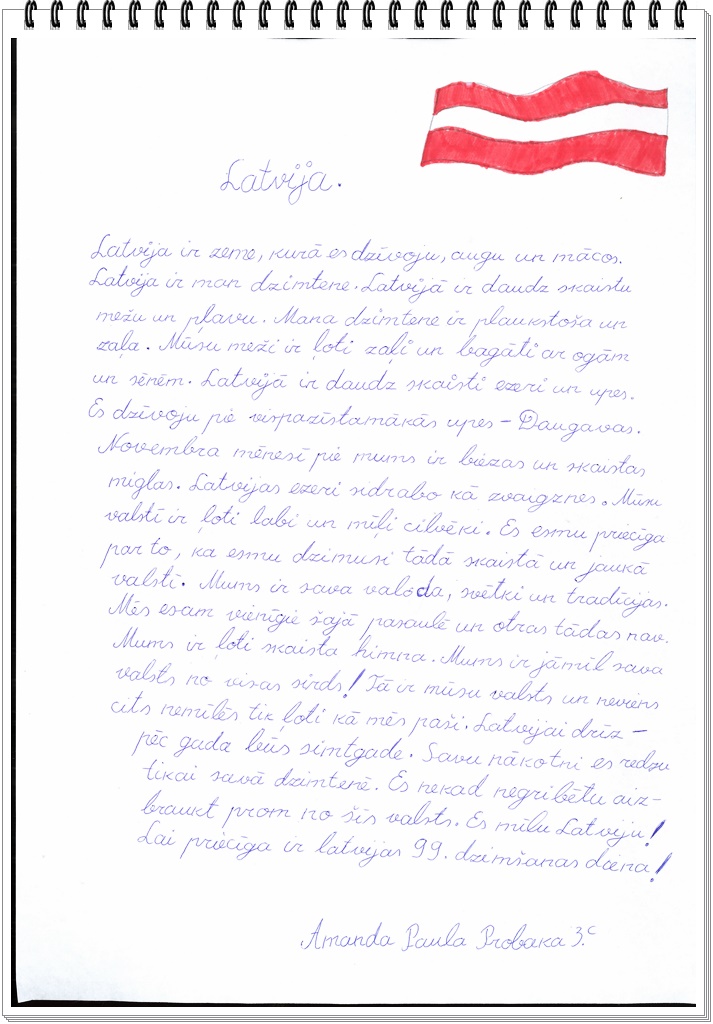 Latvija.
Latvija ir zeme, kurā es dzīvoju, augu un mācos.
Latvija ir man dzimtene. Latvijā ir daudz skaistu
mežu un pļavu. Mana dzimtene ir plaukstoša un
zaļa. Mūsu meži ir ļoti zaļi un bagāti ar ogām
un sēnēm. Latvijā ir daudz skaisti ezeri un upes.
Es dzīvoju pie vispazīstamākās upes - Daugavas.
Novembra mēnesī pie mums ir biezas un skaistas
miglas. Latvijas ezeri sidrabo kā zvaigznes. Mūsu
valstī ir ļoti labi un mīļi cilvēki. Es esmu priecīga
par to, ka esmu dzimusi tādā skaistā un jaukā
valstī. Mums ir sava valoda, svētki un tradīcijas.
Mēs esam vienīgie šajā pasaulē un otras tādas nav.
Mums ir ļoti skaista himna. Mums ir jāmīl sava
valsts no visas sirds! Tā ir mūsu valsts un neviens
cits nemīlēs tik ļoti kā mēs paši. Latvijai drīz -
pēc gada būs simtgade. Savu nākotni es redzu
tikai savā dzimtenē. Es nekad negribētu aiz-
braukt prom no šīs valsts. Es mīlu Latviju!
Lai priecīga ir latvijas 99. dzimšanas diena!
Amanda Paula Probaka 3.c